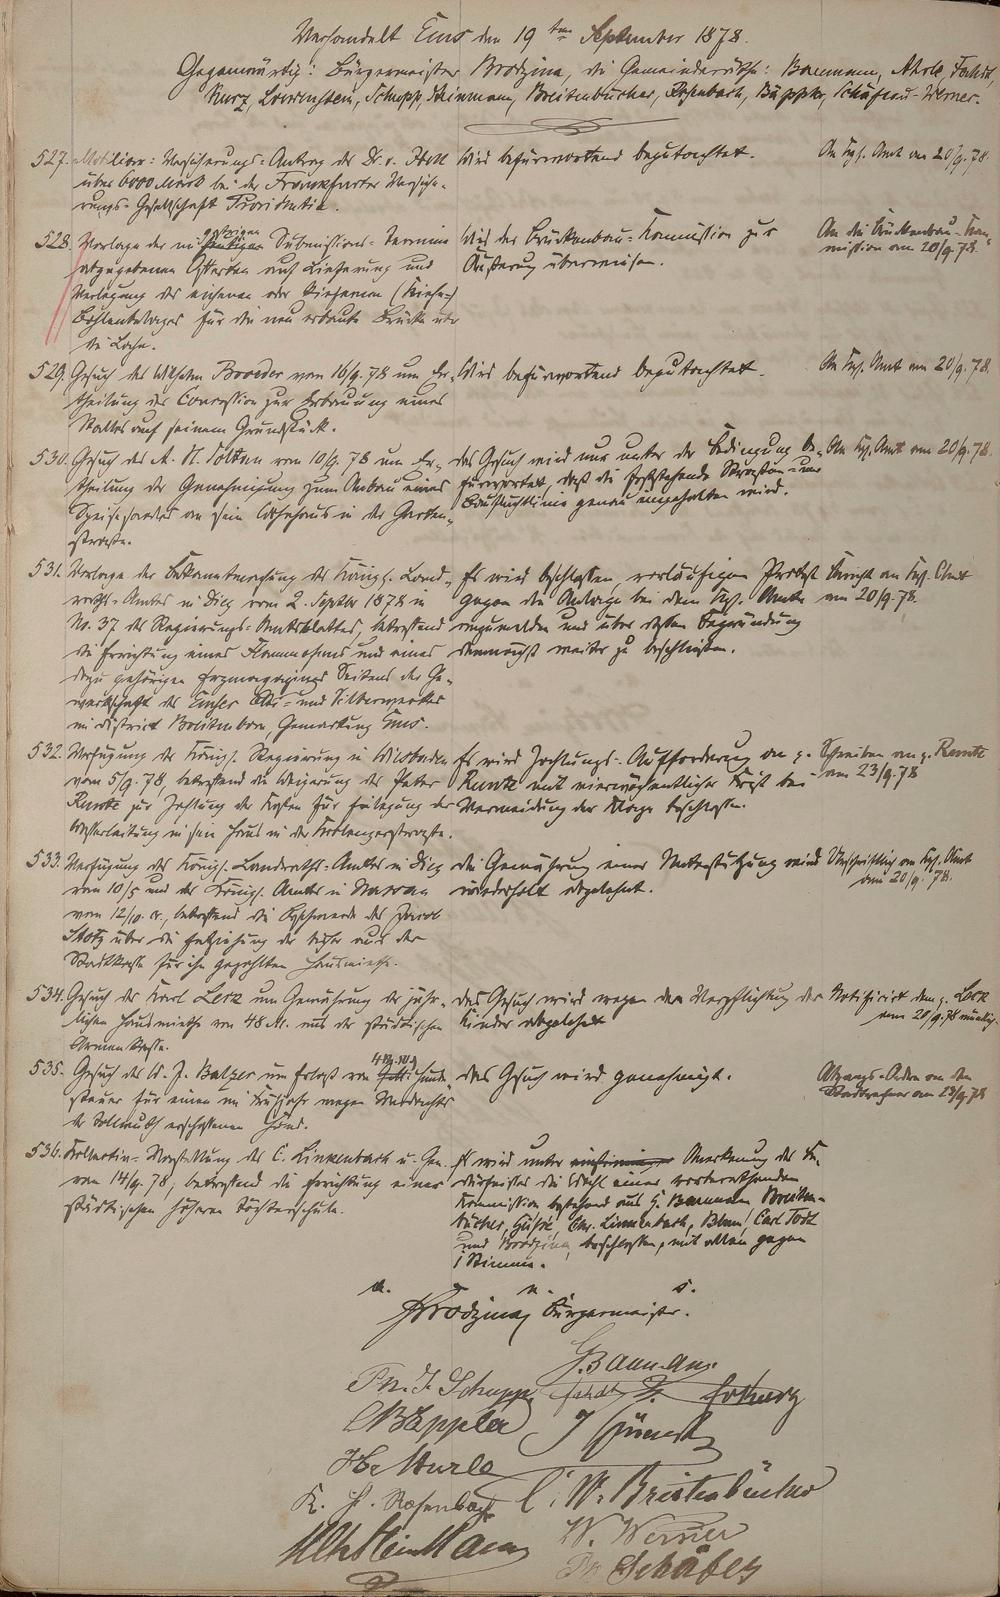 Verhandelt Ems den 19ten September 1878.
Gegenwärtig: Bürgermeister Brodzina, die Gemeinderäthe: Baumann, Fahdt,
Kurz, Schupp, Steinmann, Breitenbücher, Rosenbach, Bäppler, Schäfer u. Werner.
527. Mobiliar-Versicherungs-Antrag des Dr. v. Ibell
über 6000 Mark bei der Frankfurter Versiche-
rungs-Gesellschaft Providentia.
Wird befürwortend begutachtet.
An Kgl. Amt am 20/9. 78.
528. Vorlage der im gestrigen Submissions-Termine
abgegebenen Offerten auf Lieferung und
Verlegung des eichenen oder kiefernen (Kiefer-)
Bohlenbelages für die neu erbaute Brücke über
die Lahn.
Wird der Brückenbau-Kommission zur
Äußerung überwiesen.
An die Brückenbau-Kom-
mission am 20/9. 78.
529. Gesuch des Wilhelm Broeder vom 16/9. 78 um Er-
theilung der Concession zur Erbauung eines
Stalles auf seinem Grundstück.
Wird befürwortend begutachtet.
An Kgl. Amt am 20/9. 78.
530. Gesuch des A. H. vom 10/9. 78 um Er-
theilung der Genehmigung zum Anbau eines
Speisesaales an sein Wohnhaus in der Garten-
straße.
Das Gesuch wird nur unter der Bedingung be-
fürwortet, daß die feststehende Straßen- und
Baufluchtlinie genau eingehalten wird.
An Kgl. Amt am 20/9. 78.
531. Vorlage der Bekanntmachung des Königl. Land-
raths-Amtes in Diez vom 2. Septbr 1878 in
No. 37 des Regierungs-Amtsblattes, betreffend
die Errichtung eines Flammofens und eines
dazu gehörigen Erzmagazines Seitens der Ge-
werkschaft des Emser Blei- und Silberwerkes
im District Breitenborn, Gemarkung Ems.
Es wird beschlossen, vorläufigen Protest
gegen die Anlage bei dem Kgl. Amte
anzumelden und über dessen Begründung
demnächst weiter zu beschließen.
Bericht an Kgl. Amt
am 20/9. 78.
532. Verfügung der Königl. Regierung in Wiesbaden
vom 5/9. 78, betreffend die Weigerung des Peter
Runte zur Zahlung der Kosten für Einlegung der
Wasserleitung in sein Haus in der Koblenzerstraße.
Es wird Zahlungs-Aufforderung an p.
Runte mit vierwöchentlicher Frist bei
Vermeidung der Klage beschlossen.
Schreiben an p. Runte
am 23/9. 78
533. Verfügung des Königl. Landraths-Amtes in Diez
vom 10/5 und des Königl. Amtes in Nassau
vom 12/10. cr., betreffend die Beschwerde des Jacob
Stotz über die Entziehung der bisher aus der
Stadtkasse für ihn gezahlten Hausmiethe.
Die Gewährung einer Unterstützung wird
wiederholt abgelehnt.
Urschriftlich an Kgl. Amt
am 20/9. 78.
534. Gesuch des Karl Lerz um Gewährung der jähr-
lichen Hausmiethe von 48 M. aus der städtischen
Armenkasse.
Das Gesuch wird wegen der Verpflichtung der
Kinder abgelehnt
Notificirt dem p. Lerz
am 20/9. 78 mündlich.
535. Gesuch des W. J. Balzer um Erlaß von Hunde-
steuer für einen im Frühjahr wegen Verdachts
der Tollwuth erschossenen Hund.
Das Gesuch wird genehmigt.
Abgangs-Ordre an den
Stadtrechner am 23/9. 78
536. Kollektiv-Vorstellung des C. Linkenbach u. Gen.
vom 14/9. 78, betreffend die Errichtung einer
städtischen höheren Töchterschule.
Es wird unter Anerkennung des Be-
dürfnisses die Wahl einer vorberathenden
Kommission bestehend aus H. Baumann, Breiten-
bücher, Chr. Linkenbach, Blum, Carl Todt
und Brodzina, beschlossen, mit allen gegen
1 Stimme.
a. u. s.
Brodzina, Bürgermeister.
G. Baumann.
Ph. J. Schupp
Fahdt
C Bäppler
K. H. Rosenbach
C. W. Breitenbücher
W. Werner
Steinmann
Ph Schäfer